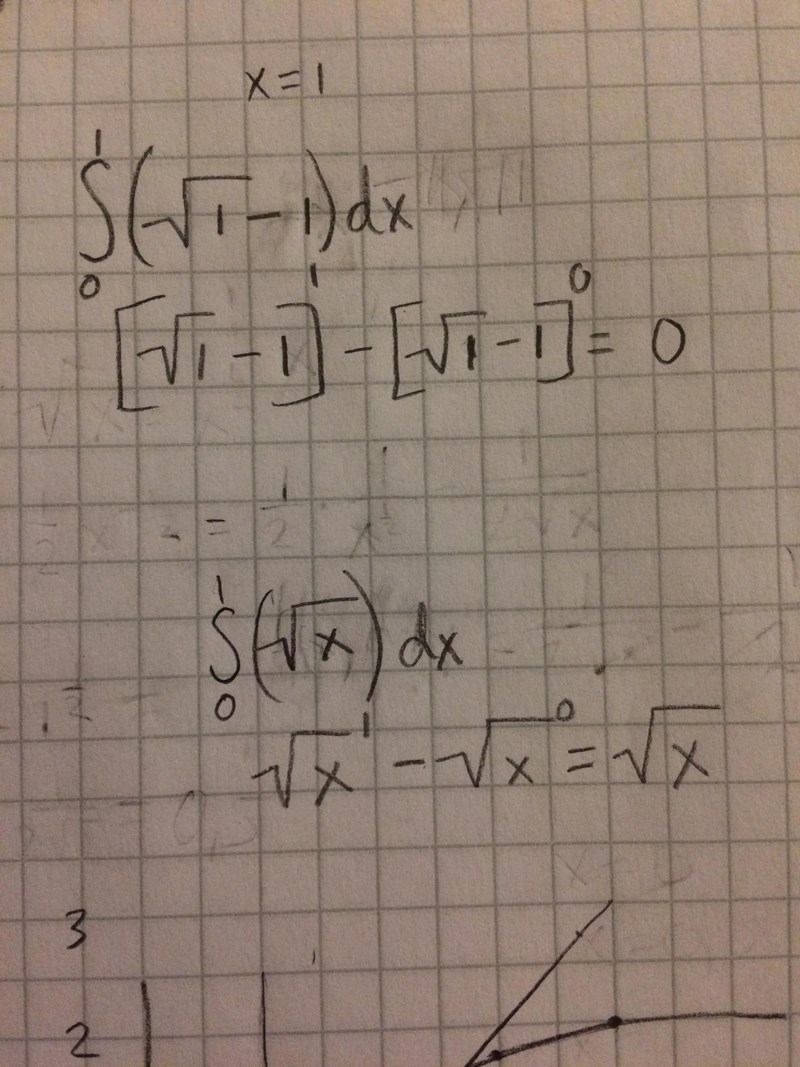 x = 1
∫₀¹ (√1 - 1) dx
[√1 - 1]¹ - [√1 - 1]⁰ = 0
∫₀¹ (√x) dx
√x¹ - √x⁰ = √x
3
2